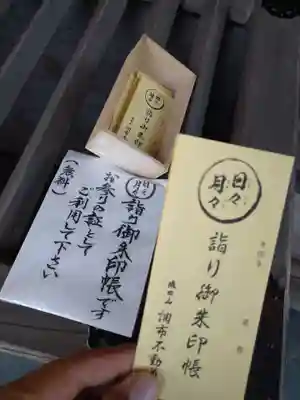 日々
月々
詣り御朱印帳です
お参りの証として
ご利用して下さい
(無料)
日々
月々
詣り御朱印帳
調布不動
詣り御朱印帳